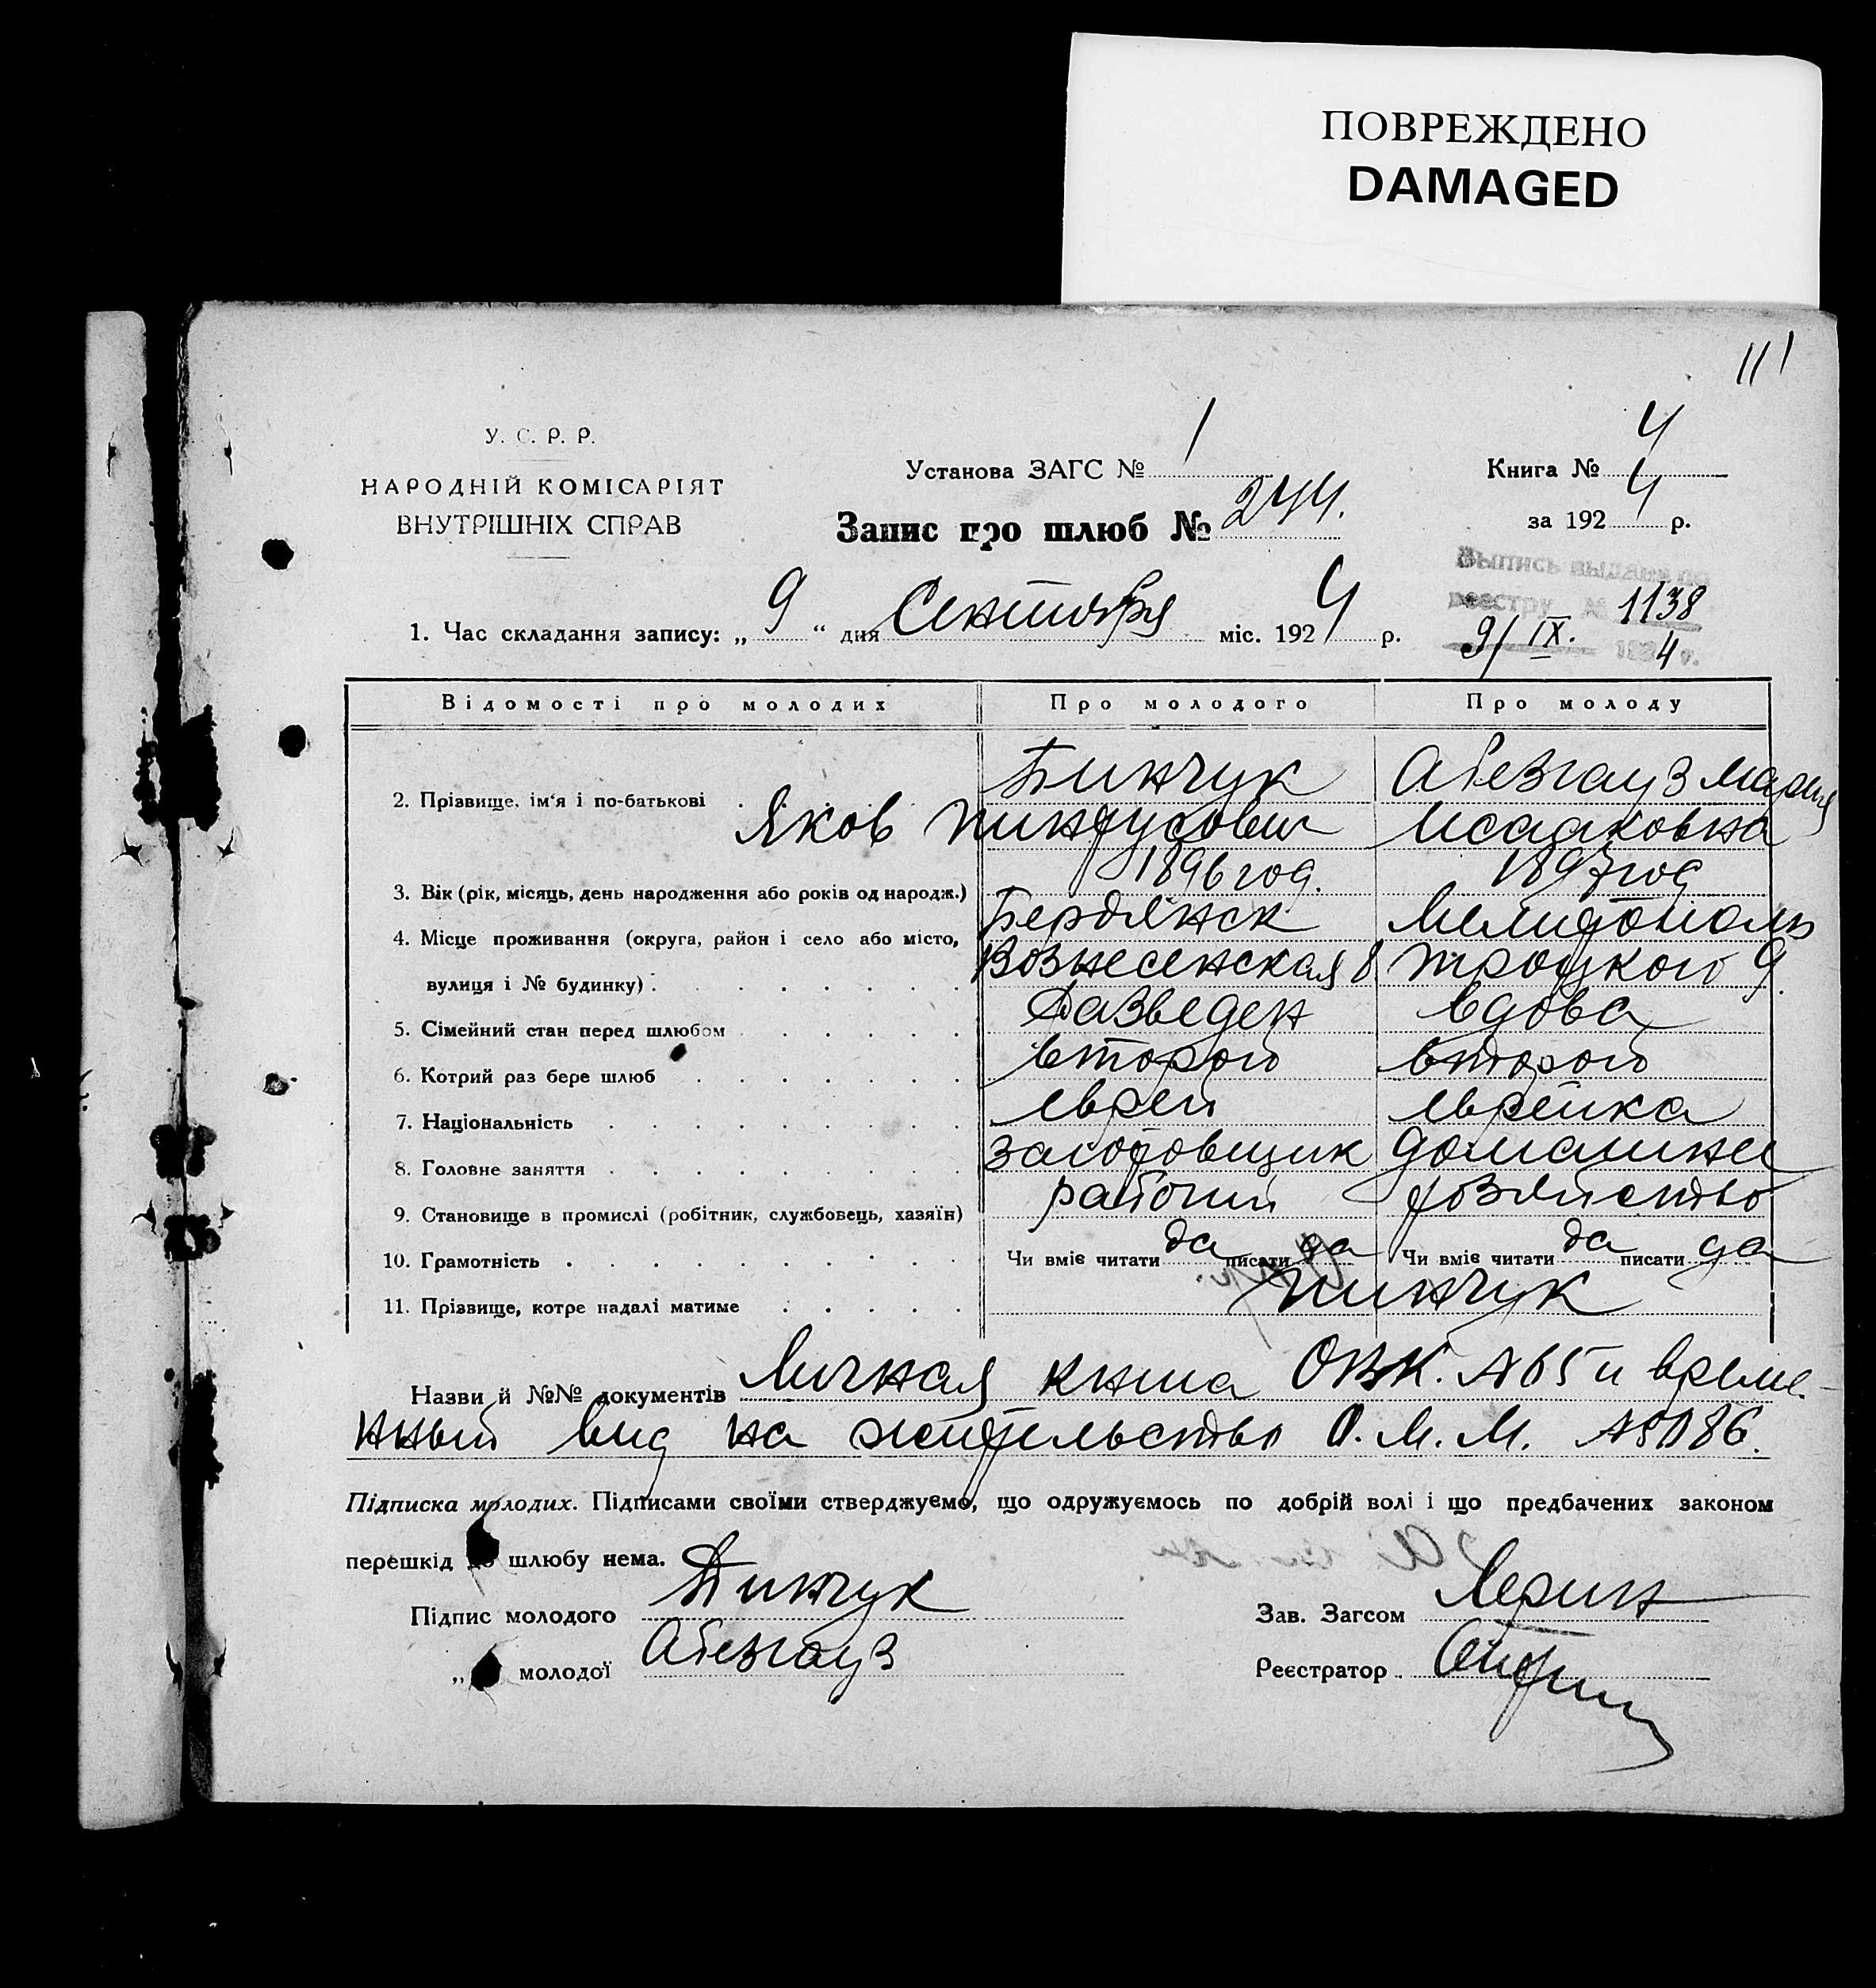 ПОВРЕЖДЕНО
DAMAGED
111
У. С. Р. Р.
НАРОДНІЙ КОМІСАРІЯТ
ВНУТРІШНІХ СПРАВ
Установа ЗАГС № 1
Книга № 4
за 1924 р.
Запис про шлюб № 244.
Выпись выдана по
реестру № 1138
9/IX. 1924 г.
1. Час складання запису: „9“ дня Сентября міс. 1924 р.
Відомості про молодих Про молодого Про молоду
2. Прізвище, ім'я і по-батькові Пинчук Абезгауз Мария
Яков Пинхусович Исааковна
3. Вік (рік, місяць, день народження або років од народж.) 1896 год. 1897 год
4. Місце проживання (округа, район і село або місто, Бердянск Мелитополь
вулиця і № будинку) Вознесенская 8 Троцкого 9.
5. Сімейний стан перед шлюбом Разведен вдова
6. Котрий раз бере шлюб второй второй
7. Національність еврей еврейка
8. Головне заняття заготовщик домашнее
9. Становище в промислі (робітник, службовець, хазяїн) рабочий хозяйство
10. Грамотність Чи вміє читати да писати да Чи вміє читати да писати да
11. Прізвище, котре надалі матиме Пинчук
Назви й №№ документів Личная книга ОВК. №65 и време-
нный вид на жительство О. М. М.
Підписка молодих. Підписами своїми стверджуємо, що одружуємось по добрій волі і що предбачених законом
перешкід до шлюбу нема.
Підпис молодого Пинчук Зав. Загсом
„ молодої Абезгауз Реєстратор